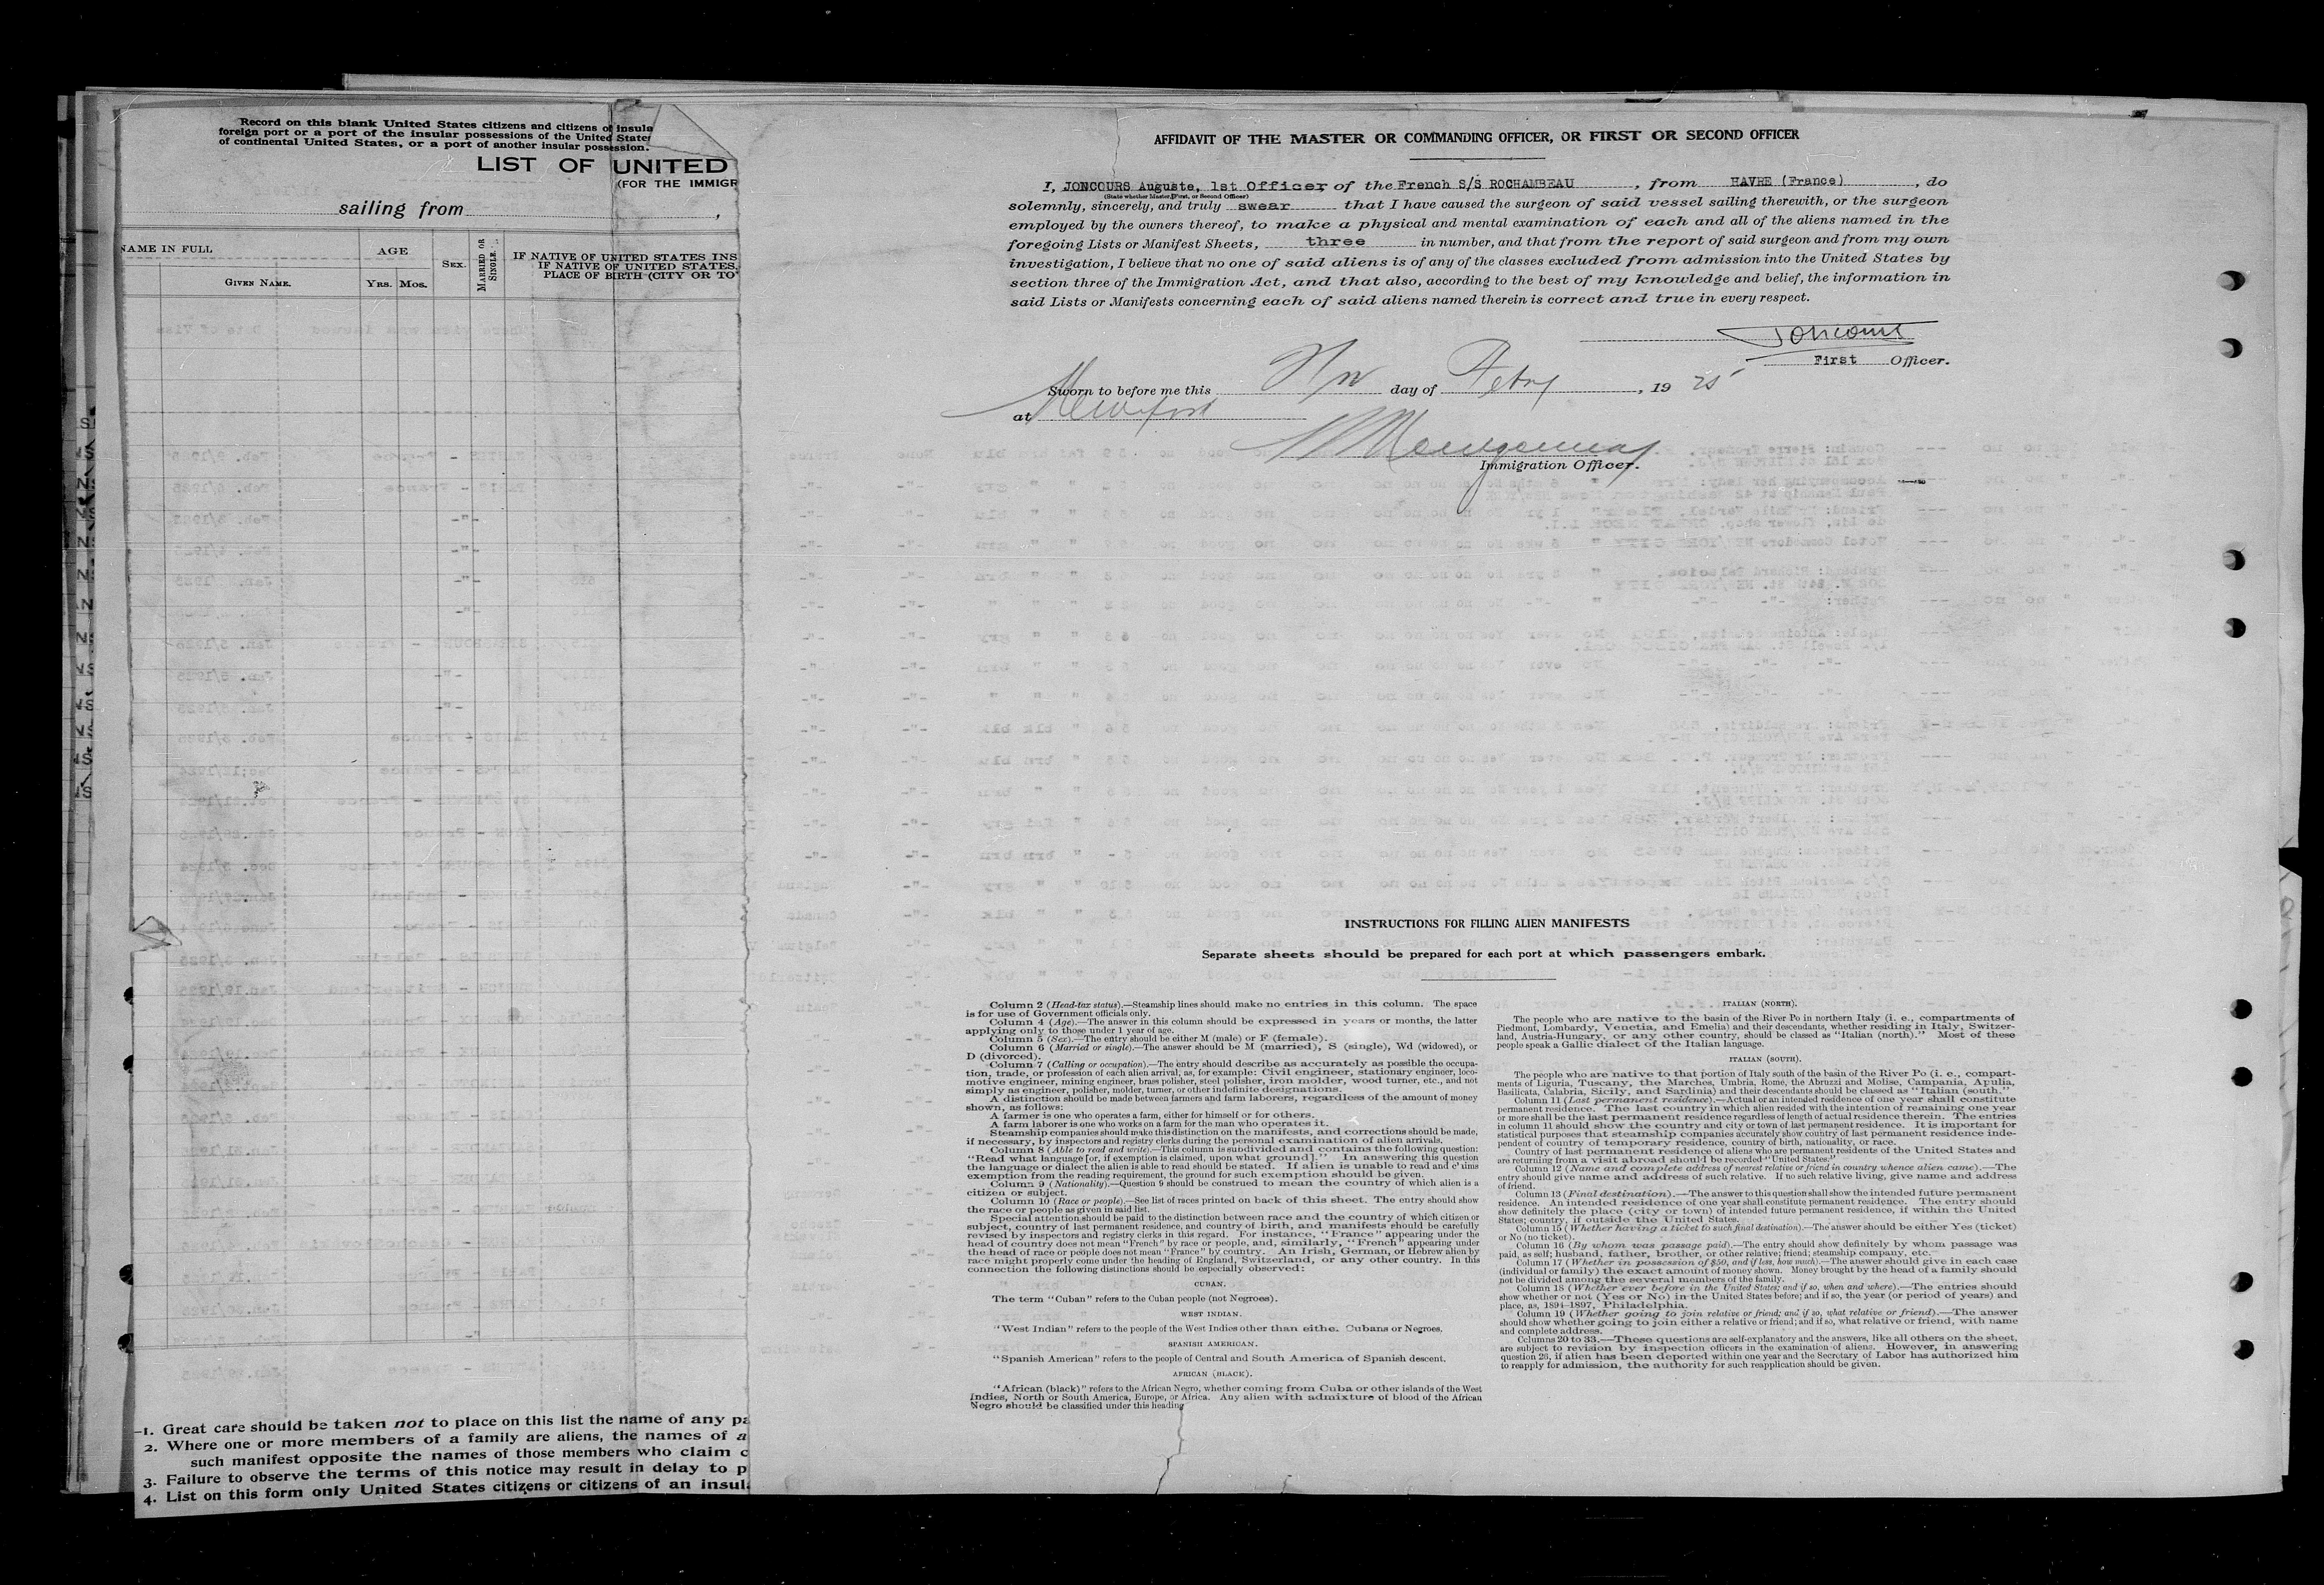 Record on this blank United States citizens and citizens of insula
foreign port or a port of the insular possessions of the United States
of continental United States, or a port of another insular possession.
LIST OF UNITED
(FOR THE IMMIGR
sailing from
NAME IN FULL
AGE
SEX.
MARRIED OR SINGLE.
IF NATIVE OF UNITED STATES INS
IF NATIVE OF UNITED STATES,
PLACE OF BIRTH (CITY OR TO
GIVEN NAME.
YRS. MOS.
1. Great care should be taken not to place on this list the name of any pa
2. Where one or more members of a family are aliens, the names of a
such manifest opposite the names of those members who claim c
3. Failure to observe the terms of this notice may result in delay to p
4. List on this form only United States citizens or citizens of an insula
AFFIDAVIT OF THE MASTER OR COMMANDING OFFICER, OR FIRST OR SECOND OFFICER
I, JONCOURS Auguste, 1st Officer of the French S/S ROCHAMBEAU, from HAVRE (France), do
(State whether Master, First, or Second Officer)
solemnly, sincerely, and truly swear that I have caused the surgeon of said vessel sailing therewith, or the surgeon
employed by the owners thereof, to make a physical and mental examination of each and all of the aliens named in the
foregoing Lists or Manifest Sheets, three in number, and that from the report of said surgeon and from my own
investigation, I believe that no one of said aliens is of any of the classes excluded from admission into the United States by
section three of the Immigration Act, and that also, according to the best of my knowledge and belief, the information in
said Lists or Manifests concerning each of said aliens named therein is correct and true in every respect.
First Officer.
Sworn to before me this day of Febry, 19 25
at
Immigration Officer.
INSTRUCTIONS FOR FILLING ALIEN MANIFESTS
Separate sheets should be prepared for each port at which passengers embark.
Column 2 (Head-tax status).—Steamship lines should make no entries in this column. The space
is for use of Government officials only.
Column 4 (Age).—The answer in this column should be expressed in years or months, the latter
applying only to those under 1 year of age.
Column 5 (Sex).—The entry should be either M (male) or F (female).
Column 6 (Married or single).—The answer should be M (married), S (single), Wd (widowed), or
D (divorced).
Column 7 (Calling or occupation).—The entry should describe as accurately as possible the occupa-
tion, trade, or profession of each alien arrival, as, for example: Civil engineer, stationary engineer, loco-
motive engineer, mining engineer, brass polisher, steel polisher, iron molder, wood turner, etc., and not
simply as engineer, polisher, molder, turner, or other indefinite designations.
A distinction should be made between farmers and farm laborers, regardless of the amount of money
shown, as follows:
A farmer is one who operates a farm, either for himself or for others.
A farm laborer is one who works on a farm for the man who operates it.
Steamship companies should make this distinction on the manifests, and corrections should be made,
if necessary, by inspectors and registry clerks during the personal examination of alien arrivals.
Column 8 (Able to read and write).—This column is subdivided and contains the following question:
"Read what language [or, if exemption is claimed, upon what ground]." In answering this question
the language or dialect the alien is able to read should be stated. If alien is unable to read and c'aims
exemption from the reading requirement, the ground for such exemption should be given.
Column 9 (Nationality).—Question 9 should be construed to mean the country of which alien is a
citizen or subject.
Column 10 (Race or people).—See list of races printed on back of this sheet. The entry should show
the race or people as given in said list.
Special attention should be paid to the distinction between race and the country of which citizen or
subject, country of last permanent residence, and country of birth, and manifests should be carefully
revised by inspectors and registry clerks in this regard. For instance, "France" appearing under the
head of country does not mean "French" by race or people, and, similarly, "French" appearing under
the head of race or people does not mean "France" by country. An Irish, German, or Hebrew alien by
race might properly come under the heading of England, Switzerland, or any other country. In this
connection the following distinctions should be especially observed:
CUBAN.
The term "Cuban" refers to the Cuban people (not Negroes).
WEST INDIAN.
"West Indian" refers to the people of the West Indies other than eithe. Cubans or Negroes.
SPANISH AMERICAN.
"Spanish American" refers to the people of Central and South America of Spanish descent.
AFRICAN (BLACK).
"African (black)" refers to the African Negro, whether coming from Cuba or other islands of the West
Indies, North or South America, Europe, or Africa. Any alien with admixture of blood of the African
Negro should be classified under this heading
ITALIAN (NORTH).
The people who are native to the basin of the River Po in northern Italy (i. e., compartments of
Piedmont, Lombardy, Venetia, and Emelia) and their descendants, whether residing in Italy, Switzer-
land, Austria-Hungary, or any other country, should be classed as "Italian (north)." Most of these
people speak a Gallic dialect of the Italian language.
ITALIAN (SOUTH).
The people who are native to that portion of Italy south of the basin of the River Po (i. e., compart-
ments of Liguria, Tuscany, the Marches, Umbria, Rome, the Abruzzi and Molise, Campania, Apulia,
Basilicata, Calabria, Sicily, and Sardinia) and their descendants should be classed as "Italian (south."
Column 11 (Last permanent residence).—Actual or an intended residence of one year shall constitute
permanent residence. The last country in which alien resided with the intention of remaining one year
or more shall be the last permanent residence regardless of length of actual residence therein. The entries
in column 11 should show the country and city or town of last permanent residence. It is important for
statistical purposes that steamship companies accurately show country of last permanent residence inde-
pendent of country of temporary residence, country of birth, nationality, or race.
Country of last permanent residence of aliens who are permanent residents of the United States and
are returning from a visit abroad should be recorded "United States."
Column 12 (Name and complete address of nearest relative or friend in country whence alien came).—The
entry should give name and address of such relative. If no such relative living, give name and address
of friend.
Column 13 (Final destination).—The answer to this question shall show the intended future permanent
residence. An intended residence of one year shall constitute permanent residence. The entry should
show definitely the place (city or town) of intended future permanent residence, if within the United
States; country, if outside the United States.
Column 15 (Whether having a ticket to such final destination).—The answer should be either Yes (ticket)
or No (no ticket).
Column 16 (By whom was passage paid).—The entry should show definitely by whom passage was
paid, as self; husband, father, brother, or other relative; friend; steamship company, etc.
Column 17 (Whether in possession of $50, and if less, how much).—The answer should give in each case
(individual or family) the exact amount of money shown. Money brought by the head of a family should
not be divided among the several members of the family.
Column 18 (Whether ever before in the United States; and if so, when and where).—The entries should
show whether or not (Yes or No) in the United States before; and if so, the year (or period of years) and
place, as, 1894-1897, Philadelphia.
Column 19 (Whether going to join relative or friend; and if so, what relative or friend).—The answer
should show whether going to join either a relative or friend; and if so, what relative or friend, with name
and complete address.
Columns 20 to 33.—These questions are self-explanatory and the answers, like all others on the sheet,
are subject to revision by inspection officers in the examination of aliens. However, in answering
question 26, if alien has been deported within one year and the Secretary of Labor has authorized him
to reapply for admission, the authority for such reapplication should be given.